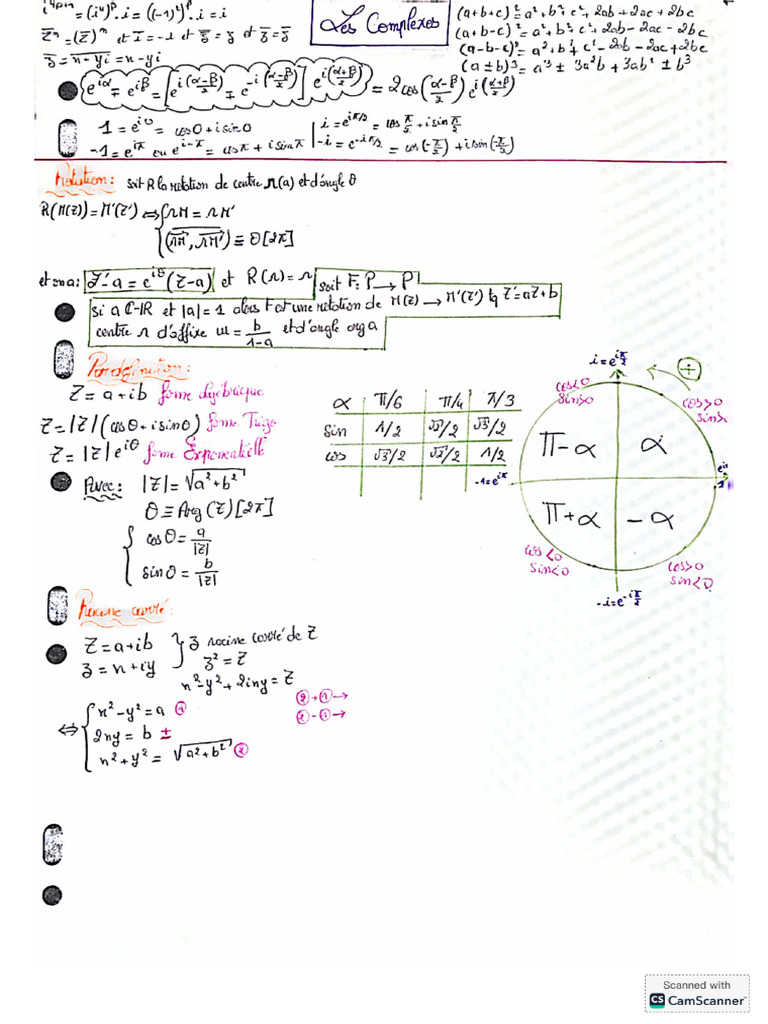 i⁴ᵖ⁺¹ = (i⁴)ᵖ.i = ((-1)²)ᵖ.i = i
Les Complexes
(a+b+c)² = a²+b²+c²+2ab+2ac+2bc
(a+b-c)² = a²+b²+c²+2ab-2ac-2bc
(a-b-c)² = a²+b²+c²-2ab-2ac+2bc
(a±b)³ = a³ ± 3a²b + 3ab² ± b³
z̄ = x-yi
e^(iα) ∓ e^(iβ) = [e^(i(α-β)/2) ∓ e^(-i(α-β)/2)] e^(i(α+β)/2) = 2cos((α-β)/2) e^(i(α+β)/2)
1 = e^(i0) = cos0 + isin0
i = e^(iπ/2) = cos π/2 + isin π/2
-1 = e^(iπ) ou e^(i-π) = cosπ + isinπ
-i = e^(-iπ/2) = cos(-π/2) + isin(-π/2)
Rotation: soit R la rotation de centre Ω(a) et d'angle θ
R(M(z)) = M'(z') ⇔ { ΩM = ΩM'
(ΩM, ΩM') ≡ θ[2π]
et on a: z'-a = e^(iθ)(z-a) et R(Ω) = Ω
soit F: P → P
M(z) → M'(z') tq z' = az+b
Si a ℂ-IR et |a| = 1 alors F est une rotation de
centre Ω d'affixe ω = b/(1-a) et d'angle arg a
Par definition:
Z = a+ib forme Algébrique
Z = |Z|(cosθ + isinθ) forme Trigo
Z = |Z|e^(iθ) forme Exponentielle
Avec: |Z| = √(a²+b²)
θ ≡ Arg(Z)[2π]
{ cosθ = a/|Z|
sinθ = b/|Z|
α π/6 π/4 π/3
sin 1/2 √2/2 √3/2
cos √3/2 √2/2 1/2
i = e^(iπ/2)
+
cos<0
sin>0
cos>0
π-α
α
-1 = e^(iπ)
1
π+α
-α
cos<0
sin<0
cos>0
sin<0
-i = e^(-iπ/2)
Racine carré:
Z = a+ib
z = x+iy
} z racine carré de Z
z² = Z
x²-y²+2ixy = Z
⇔ { x²-y² = a ①
2xy = b ±
x²+y² = √(a²+b²) ②
②+①→
②-①→
Scanned with
CS CamScanner